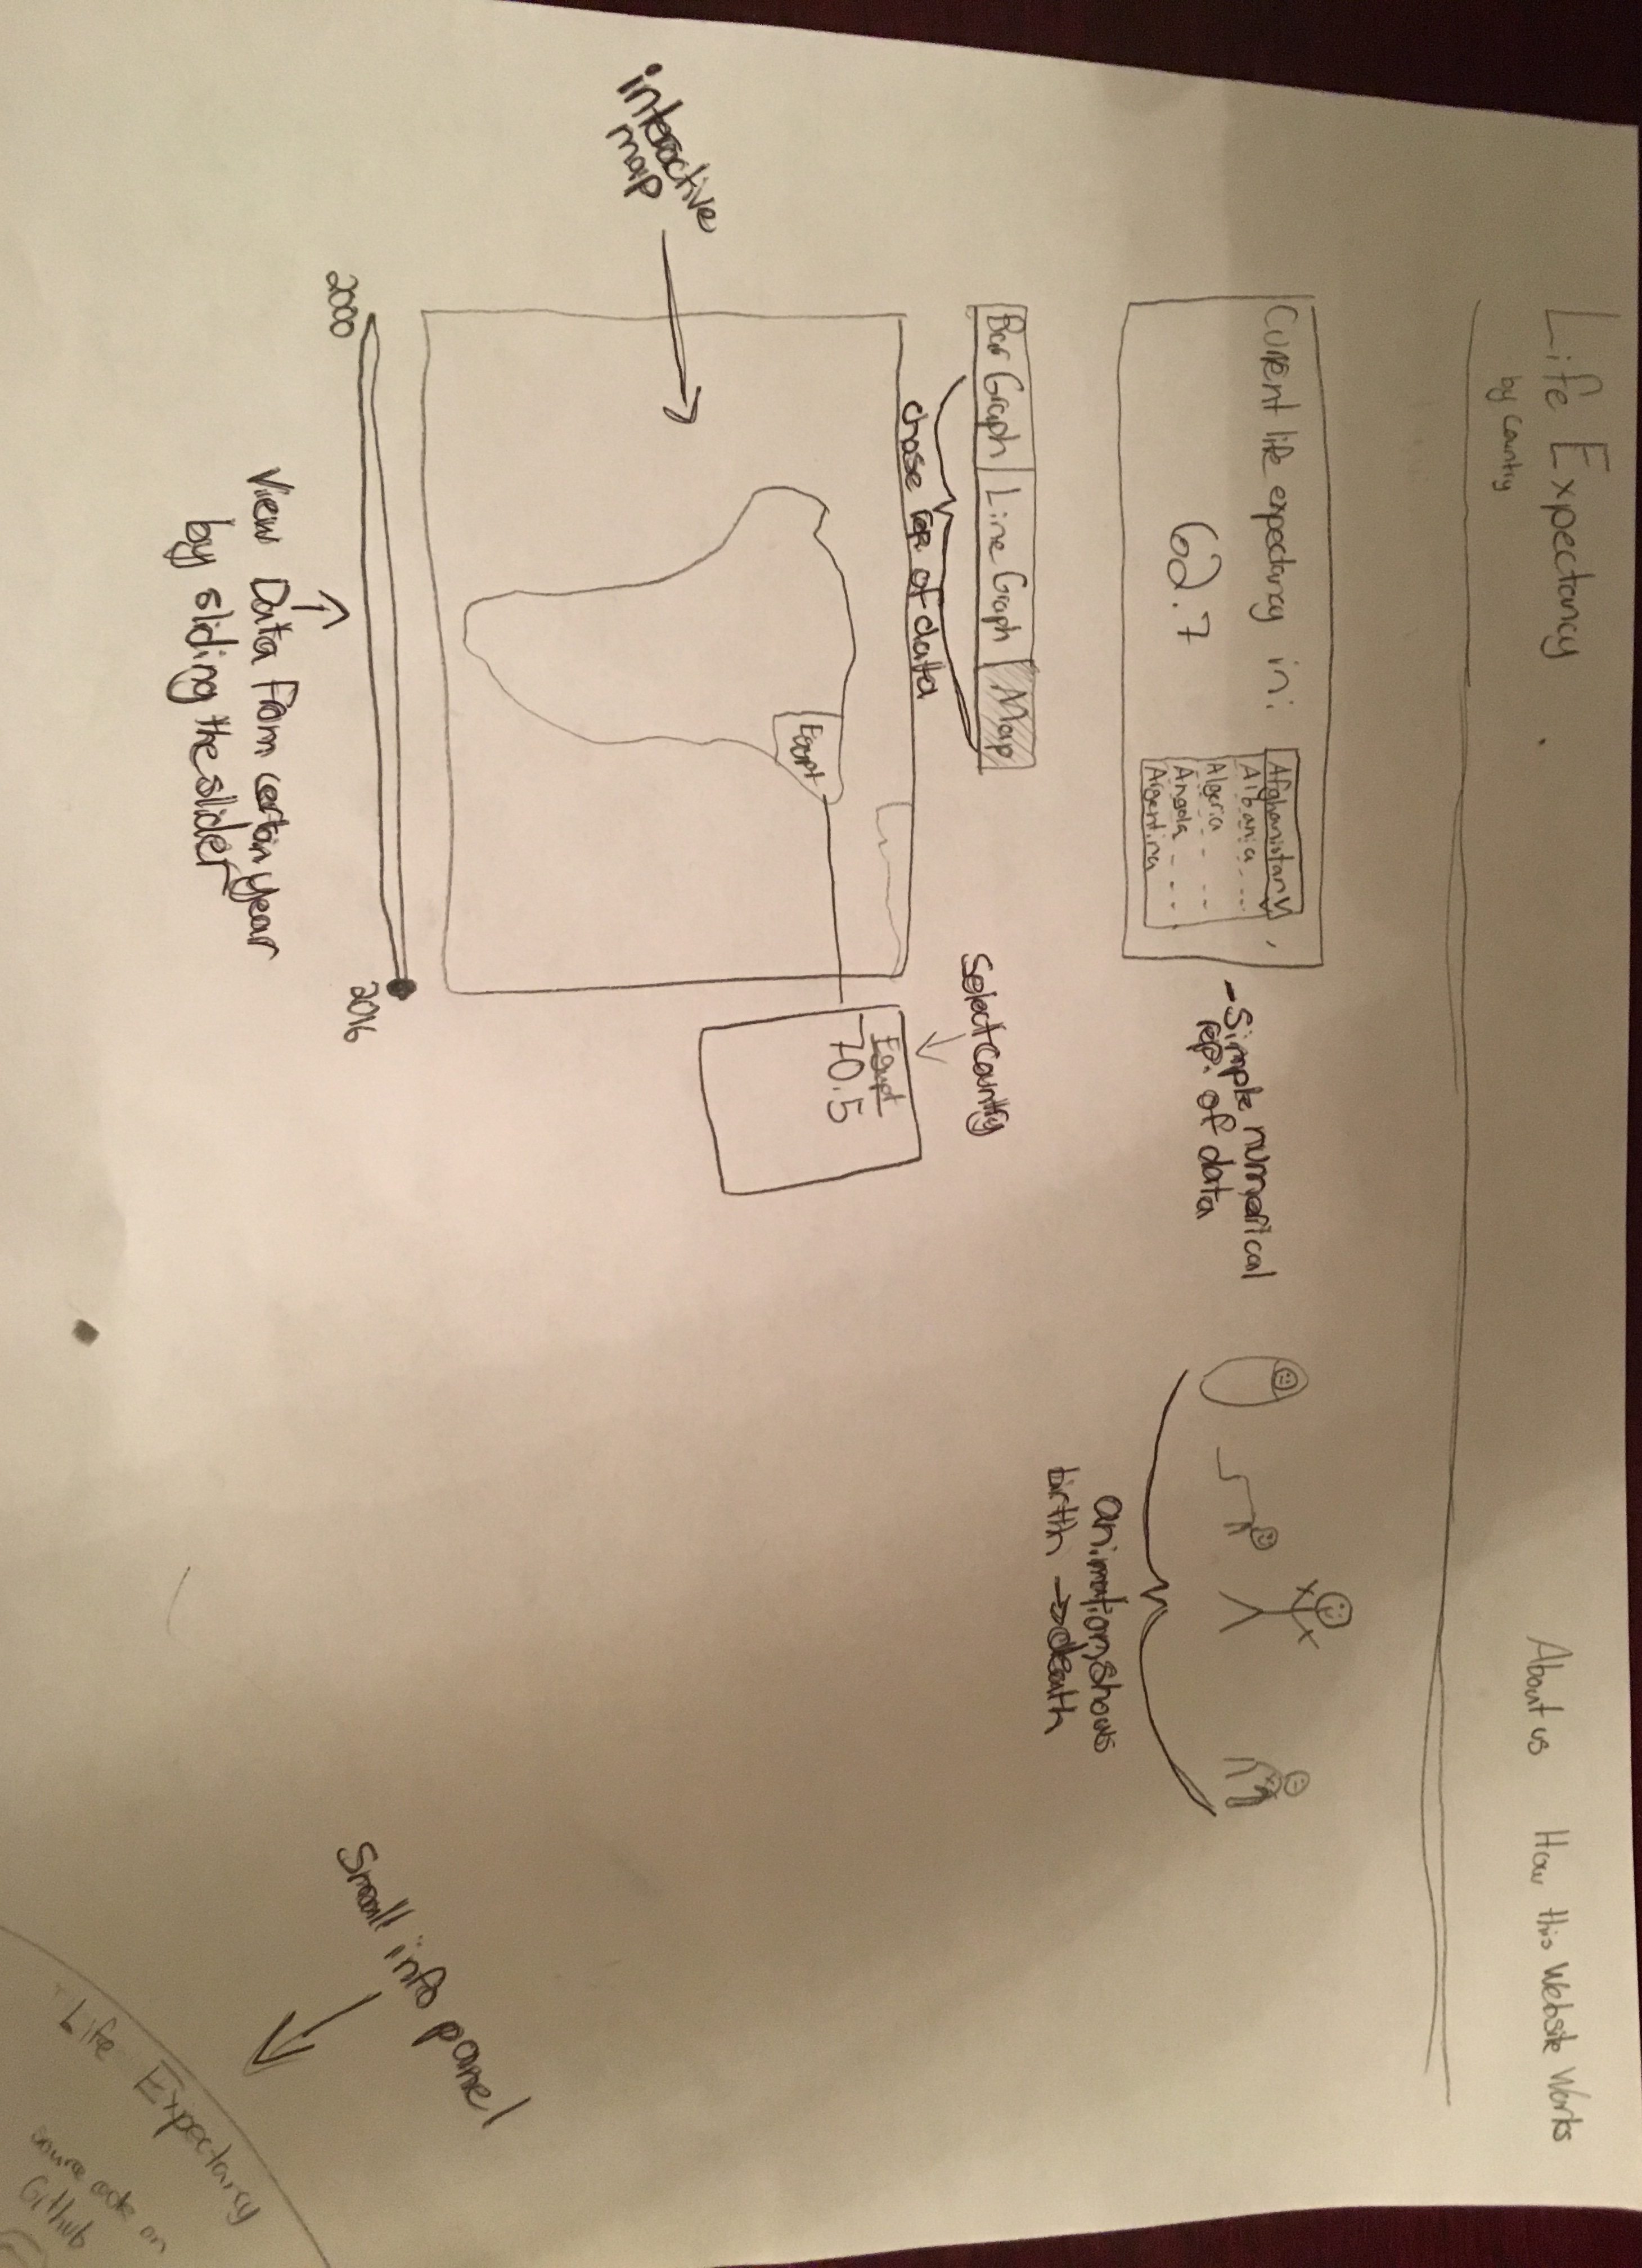 Life Expectancy
by country
About us
How this Website Works
Current life expectancy in:
62.7
Afghanistan
Albania ...
Algeria ...
Angola ...
Argentina
- Simple numerical
rep. of data
animation, shows
birth → death
Bar Graph
Line Graph
Map
chose rep of data
Select Country
interactive
map
Egypt
Egypt
70.5
2000
2016
View Data From certain year
by sliding the slider
Small info panel
Life Expectancy
source code on
Github